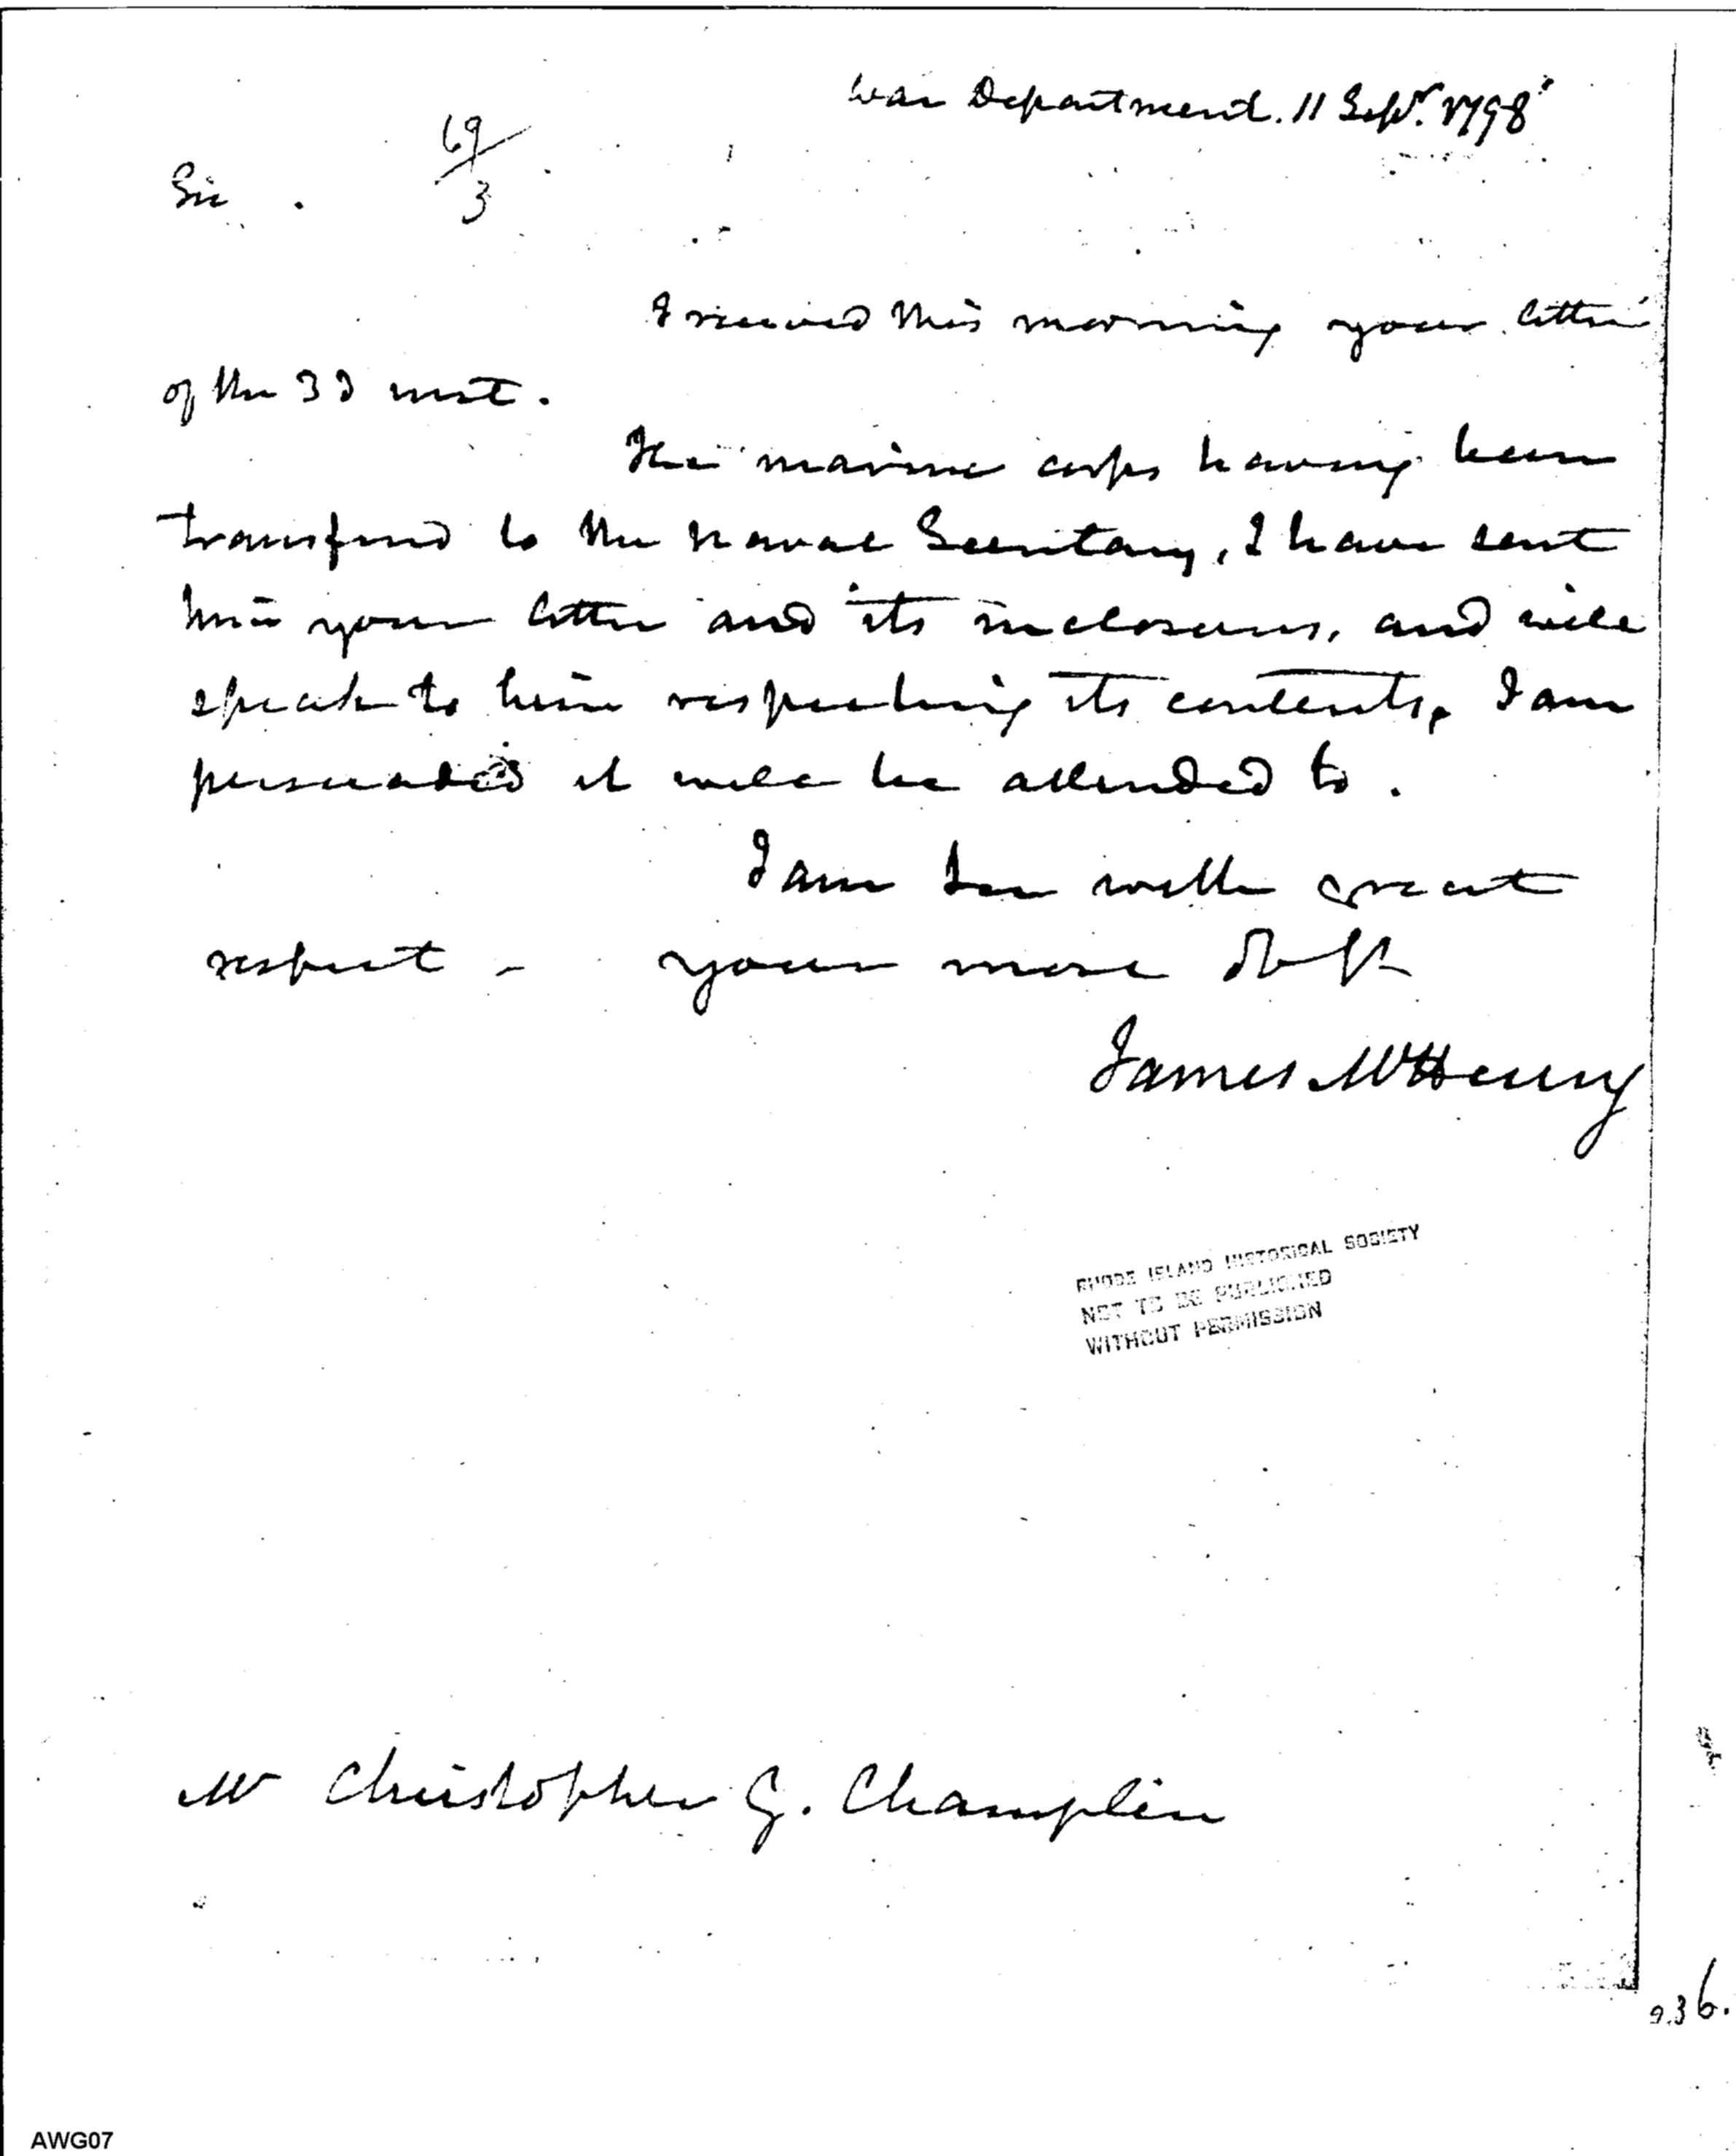 War Department. 11 Sepr. 1798
69/3
Sir
I received this morning your letter
of the 3d inst.
The marine corps having been
transferred to the naval Secretary, I have sent
him your letter and its inclosures, and will
speak to him respecting its contents, I am
persuaded it will be attended to.
I am Sir with great
respect - your most obt
James McHenry
RHODE ISLAND HISTORICAL SOCIETY
NOT TO BE PUBLISHED
WITHOUT PERMISSION
Mr Christopher G. Champlin
936.
AWG07